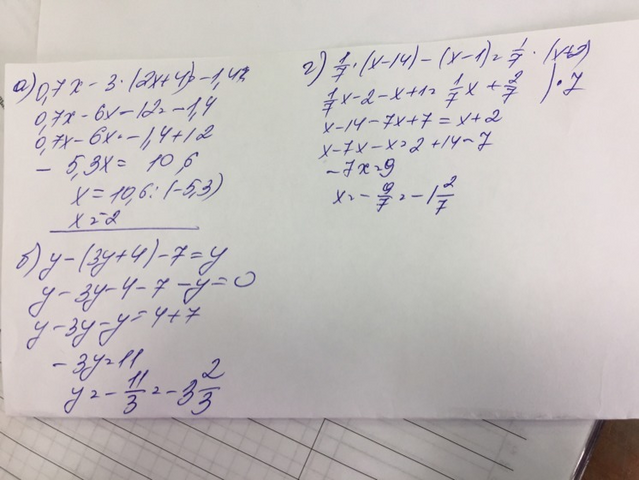 а) 0,7x - 3 · (2x+4) = -1,4
0,7x - 6x - 12 = -1,4
0,7x - 6x = -1,4 + 12
- 5,3x = 10,6
x = 10,6 : (-5,3)
x = -2
б) y - (3y+4) - 7 = y
y - 3y - 4 - 7 - y = 0
y - 3y - y = 4 + 7
- 3y = 11
y = - 11/3 = -3 2/3
г) 1/7 · (x-14) - (x-1) = 1/7 · (x+2)
1/7 x - 2 - x + 1 = 1/7 x + 2/7 ) · 7
x - 14 - 7x + 7 = x + 2
x - 7x - x = 2 + 14 - 7
- 7x = 9
x = - 9/7 = -1 2/7